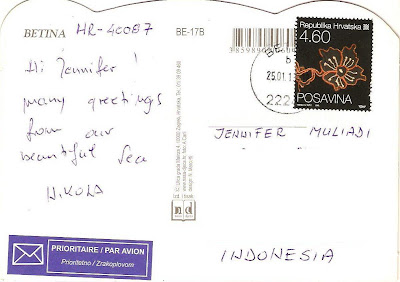 BETINA
HR-40087
BE-17B
Hi Jennifer !
many greetings
from our
beautiful Sea
NIKOLA
PRIORITAIRE / PAR AVION
Prioritetno / Zrakoplovom
Republika Hrvatska
4.60
POSAVINA
25.01.1
2222
JENNIFER MULIADI
INDONESIA